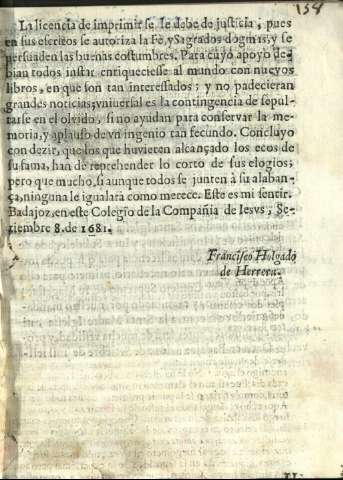 158
La licencia de imprimir se le debe de justicia, pues
en sus escritos se autoriza la Fè, y Sagrados dogmas, y se
persuaden las buenas costumbres. Para cuyo apoyo de-
bian todos instar enriqueciesse al mundo con nuevos
libros, en que son tan interessados; y no padecieran
grandes noticias, vniuersal es la contingencia de sepul-
tarse en el olvido, si no ayudan para conservar la me-
moria, y aplauso de vn ingenio tan fecundo. Concluyo
con dezir, que los que huvieren alcançado los ecos de
su fama, han de reprehender lo corto de sus elogios;
pero que mucho, si aunque todos se junten à su alaban-
ça, ninguna le igualarà como merece. Este es mi sentir.
Badajoz, en este Colegio de la Compañia de Iesvs, Se-
tiembre 8. de 1681.
Francisco Holgado
de Herrera.